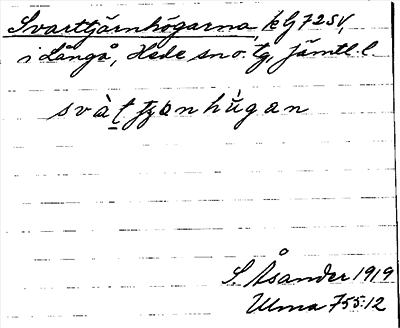 Svarttjärnhögarna, k G72SV,
i Långå, Hede sn o. tg, Jämtl. l.
svàt tjanhùgan
S. Åsander 1919
Ulma 755:12